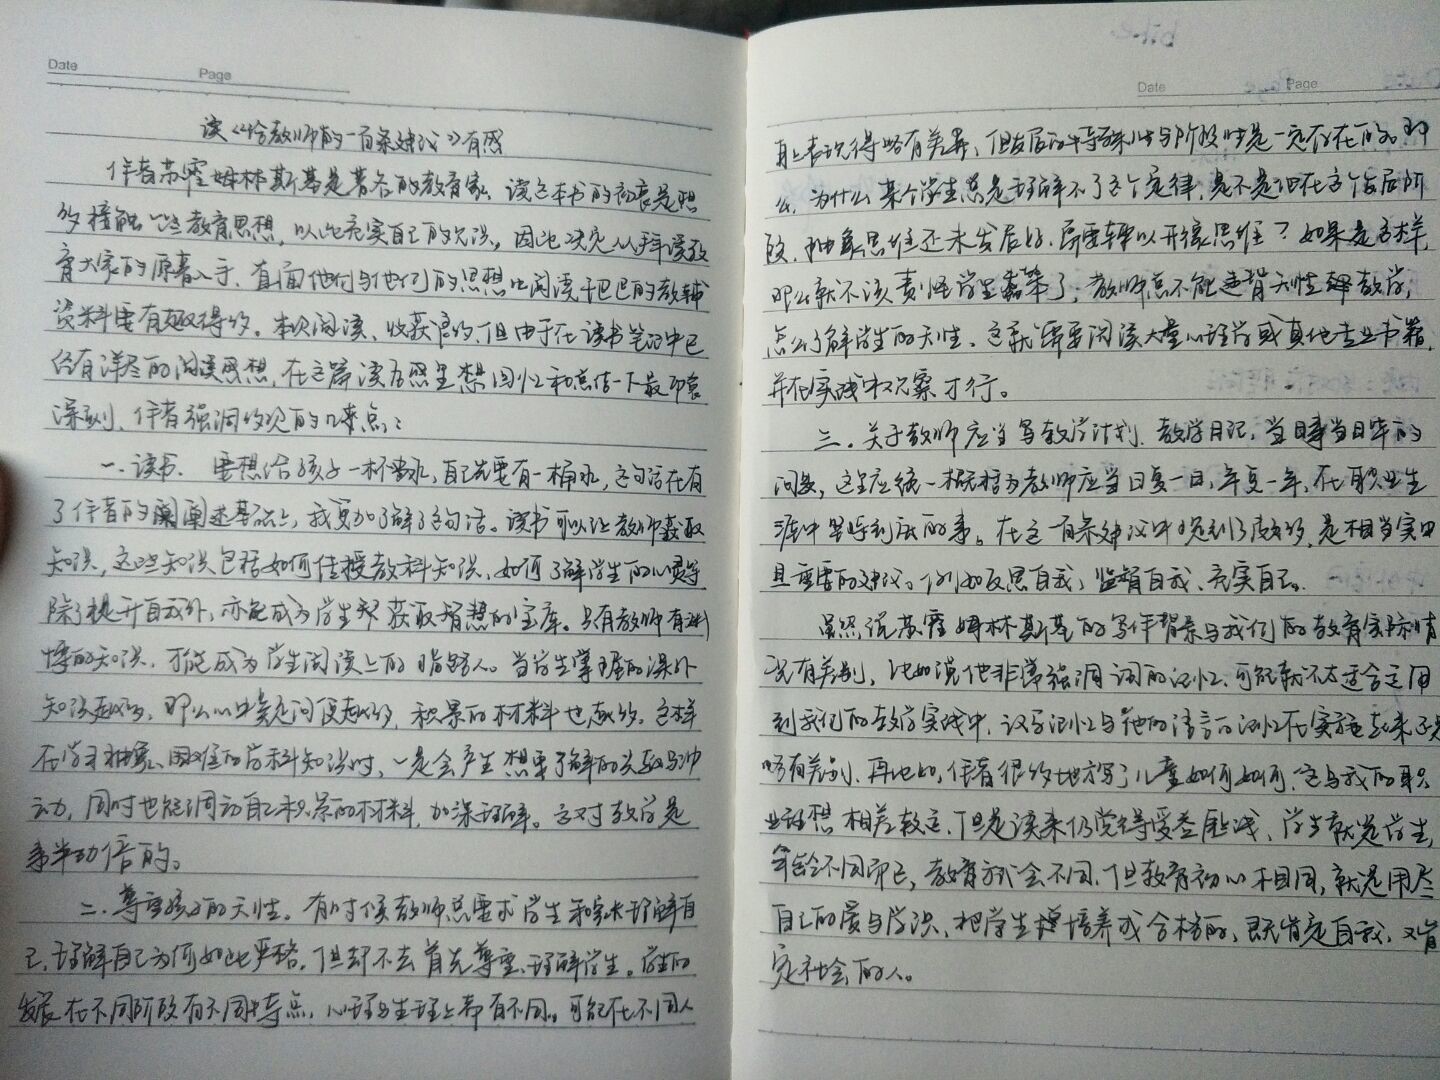 Date Page
读《给教师的一百条建议》有感
作者苏霍姆林斯基是著名的教育家，读这本书的初衷是想
多接触一些教育思想，以此充实自己的见识，因此决定从读教
育大家的原著入手，直面他们与他们的思想比阅读干巴巴的教辅
资料要有趣得多。本次阅读，收获良多，但由于在读书笔记中已
经有详尽的阅读感想，在这篇读后感里想回忆和总结一下最印象
深刻、作者强调多次的几点：
一、读书。要想给孩子一杯水，自己先要有一桶水，这句话在有
了作者的阐述基础上，我更加了解了这句话。读书可以让教师获取
知识，这些知识包括如何传授教科知识、如何了解学生的心灵等
除了提升自我外，亦能成为学生获取智慧的宝库。只有教师有渊
博的知识，才能成为学生阅读上的指路人。当学生掌握的课外
知识越多，那么心中疑问便越多，积累的材料也越多。这样
在学习抽象、困难的学科知识时，一是会产生想要了解的兴趣与冲
动，同时也能调动自己积累的材料，加深理解。这对教学是
事半功倍的。
二、尊重孩子的天性。有时候教师总要求学生和家长理解自
己，理解自己为何如此严格，但却不去首先尊重、理解学生。学生的
发展在不同阶段有不同特点，心理与生理上都有不同。可能在不同人
Date Page
身上表现得略有差异，但发展的特殊性与阶段性是一定存在的。那
么，为什么某个学生总是理解不了这个定律，是不是他在这个发展阶
段，抽象思维还未发展好，需要辅以形象思维？如果是这样，
那么就不该责怪学生愚笨了，教师总不能违背天性教学，
怎么了解学生的天性，这就需要阅读大量心理学或其他专业书籍，
并在实践中观察才行。
三、关于教师应当写教学计划、教学日记，当日事当日毕的
问题，这里应统一概括为教师应当日复一日，年复一年，在职业生
涯中坚持到底的事。在这一百条建议中提到了很多，是相当实用
且重要的建议。例如反思自我，监督自我、充实自己。
虽然说苏霍姆林斯基的写作背景与我们的教育实际情
况有差别，比如说他非常强调词的记忆，可能就不太适合运用
到我们的教学实践中，汉字记忆与他的语言的记忆在实施起来还是
略有差别，再比如，作者很多地方写了儿童如何如何，这与我的职
业理想相差较远，但是读来仍觉得受益匪浅，学生就是学生，
年龄不同而已，教育就会不同，但教育初心相同，就是用尽
自己的爱与学识，把学生培养成合格的、既肯定自我，又肯
定社会的人。